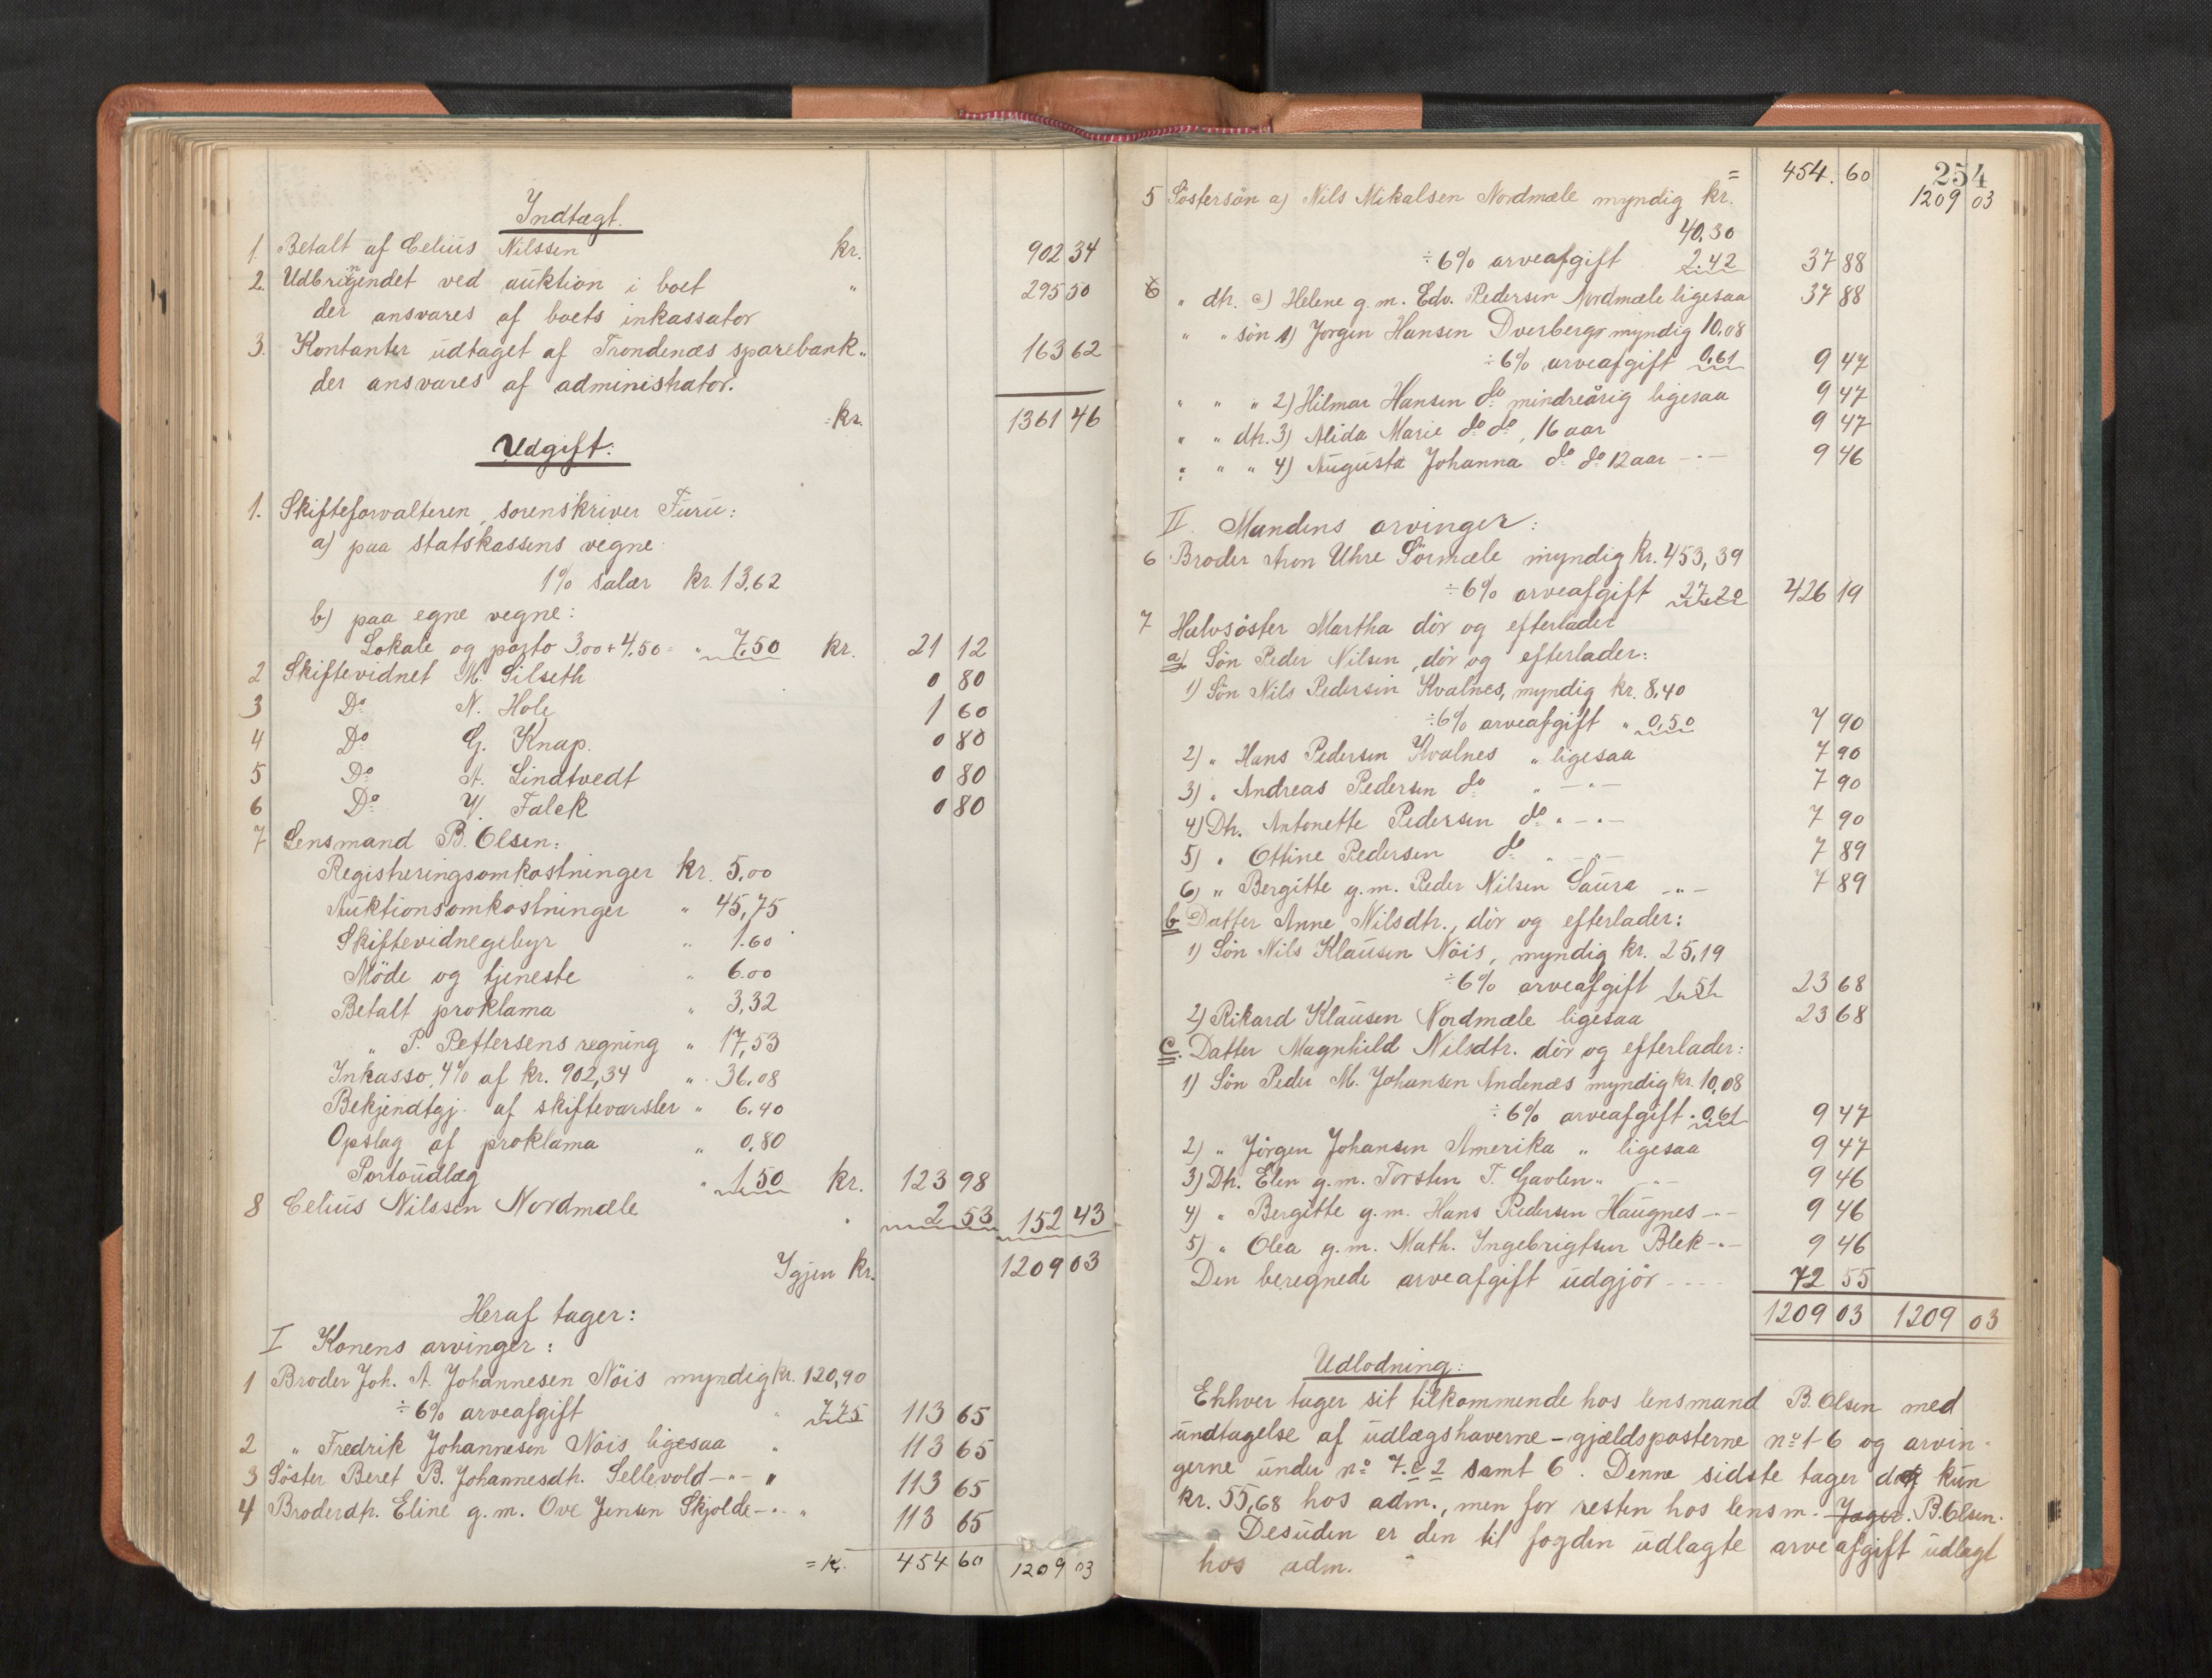 Indtægt.
1. Betalt af Celius Nilssen kr. 902 34
2. Udbringendet ved auktion i boet " 295 50
der ansvares af boets inkassator
3. Kontanter udtaget af Trondenæs sparebank " 163 62
der ansvares af administrator.
= kr. 1361 46
Udgift:
1. Skifteforvalteren, sorenskriver Furu:
a) paa statskassens vegne
1% salær kr. 13,62
b) paa egne vegne:
Lokale og porto 3,00 + 4,50 = " 7,50 kr. 21 12
2 Skiftevidnet M. Silseth 0 80
3 Do N. Hole 1 60
4 Do G. Knap. 0 80
5 Do A. Lindtvedt 0 80
6 Do V. Falck 0 80
7 Lensmand B. Olsen:
Registreringsomkostninger kr. 5,00
Auktionsomkostninger " 45,75
Skiftevidnegebyr " 1.60
Möde og tjeneste " 6.00
Betalt proklama " 3,32
" P. Pettersens regning " 17,53
Inkasso, 4% af kr. 902,34 " 36.08
Bekjendtgj. af skiftevarsler " 6.40
Opslag af proklama " 0,80
Portoudlæg " 1,50 kr. 123 98
8 Celius Nilssen Nordmæle " 2 53 152 43
Igjen kr. 1209 03
Heraf tager:
I Konens arvinger:
1 Broder Joh. A. Johannesen Nöis myndig kr. 120,90
÷ 6% arveafgift " 7.25 113 65
2 " Fredrik Johannesen Nöis ligesaa " 113 65
3 Söster Beret B. Johannesdtr. Sellevold -"- " 113 65
4 Broderdtr. Eline g.m. Ove Jensen Skjolde -"- " 113 65
= Kr. 454 60 1209 03
254
= 454. 60 1209 03
5 Söstersön a) Nils Mikalsen Nordmæle myndig kr.
40,30
÷ 6% arveafgift 2.42 37 88
6 " dtr. c) Helene g.m. Edv. Pedersen Nordmæle ligesaa 37 88
" " sön 1) Jörgen Hansen Dverberg myndig 10.08
÷ 6% arveafgift 0,61 9 47
" " " 2) Hilmar Hansen do mindreårig ligesaa 9 47
" " dtr. 3) Alida Marie do do, 16 aar 9 47
" " " 4) Augusta Johanna do do 12 aar -"- 9 46
II. Mandens arvinger:
6 Broder Aron Uhre Sörmæle myndig kr. 453,39
÷ 6% arveafgift 27,20 426 19
7 Halvsöster Martha död og efterlader
a) Sön Peder Nilsen, död og efterlader:
1) Sön Nils Pedersen Kvalnes, myndig kr. 8,40
÷ 6% arveafgift " 0,50 7 90
2) " Hans Pedersen Kvalnes " ligesaa 7 90
3) " Andreas Pedersen do " -"- 7 90
4) Dtr. Antonette Pedersen do " -"- 7 90
5) " Ottine Pedersen do " -"- 7 89
6) " Bergitte g.m. Peder Nilsen Saura -"- 7 89
b Datter Anne Nilsdtr., död og efterlader:
1) Sön Nils Klausen Nöis, myndig kr. 25,19
÷ 6% arveafgift 1.51 23 68
2) Rikard Klausen Nordmæle ligesaa 23 68
c. Datter Magnhild Nilsdtr. död og efterlader:
1) Sön Peder M. Johansen Andenæs myndig kr. 10,08
÷ 6% arveafgift " 0,61 9 47
2) " Jörgen Johansen Amerika " ligesaa 9 47
3) Dtr. Elen g.m. Torsten T. Gavlen " -"- 9 46
4) " Bergitte g.m. Hans Pedersen Haugnes -"- 9 46
5) " Olea g.m. Math. Ingebrigtsen Blek -"- 9 46
Den beregnede arveafgift udgjör 72 55
1209 03 1209 03
Udlodning:
Ehhver tager sit tilkommende hos lensmand B. Olsen med
undtagelse af udlægshaverne - gjældsposterne no 1-6 og arvin-
gerne under no 7. c 2 samt 6. Denne sidste tager dog kun
kr. 55,68 hos adm., men for resten hos lensm. Jager. B. Olsen.
Desuden er den til fogden udlagte arveafgift udlagt
hos adm.